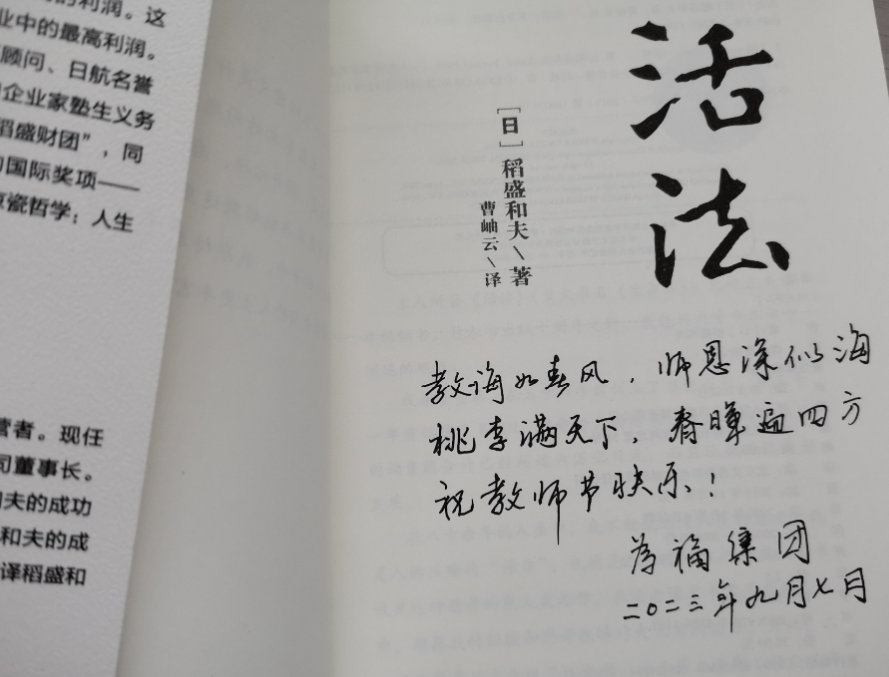 的利润。这
业中的最高利润。
顾问、日航名誉
企业家塾生义务
稻盛财团”，同
国际奖项——
瓷哲学：人生
营者。现任
司董事长。
夫的成功
和夫的成
译稻盛和
活法
[日]稻盛和夫\著
曹岫云\译
教诲如春风，师恩深似海
桃李满天下，春晖遍四方
祝教师节快乐！
为福集团
二〇二三年九月七日